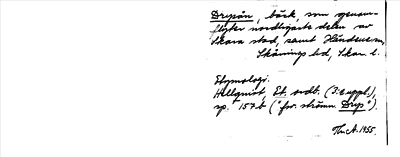 Drypån, bäck, som genom-
flyter nordligaste delen av
Skara stad, samt Händene sn,
Skånings hd, Skar. l.
Etymologi.
Hellquist, Et. ordb. (3:e uppl.),
sp. 157 b ("fsv. strömn. Dryp").
Th. A. 1955.